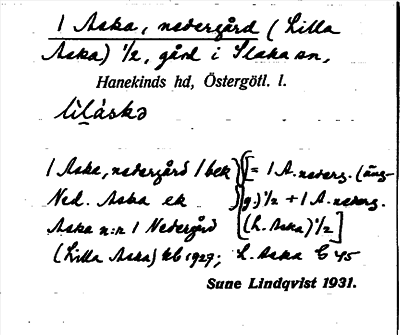 1 Aska, nedergård (Lilla
Aska) 1/2, gård i Slaka sn,
Hanekinds hd, Östergötl. l.
lilàskə
1 Aska, nedergård 1 bek } [= 1 A. nederg. (äng-
Ned. Aska ek } g.) 1/2 + 1 A. nederg.
Aska n:r 1 Nedergård (L. Aska) 1/2]
(Lilla Aska) kb 1927; L. Aska E 45
Sune Lindqvist 1931.